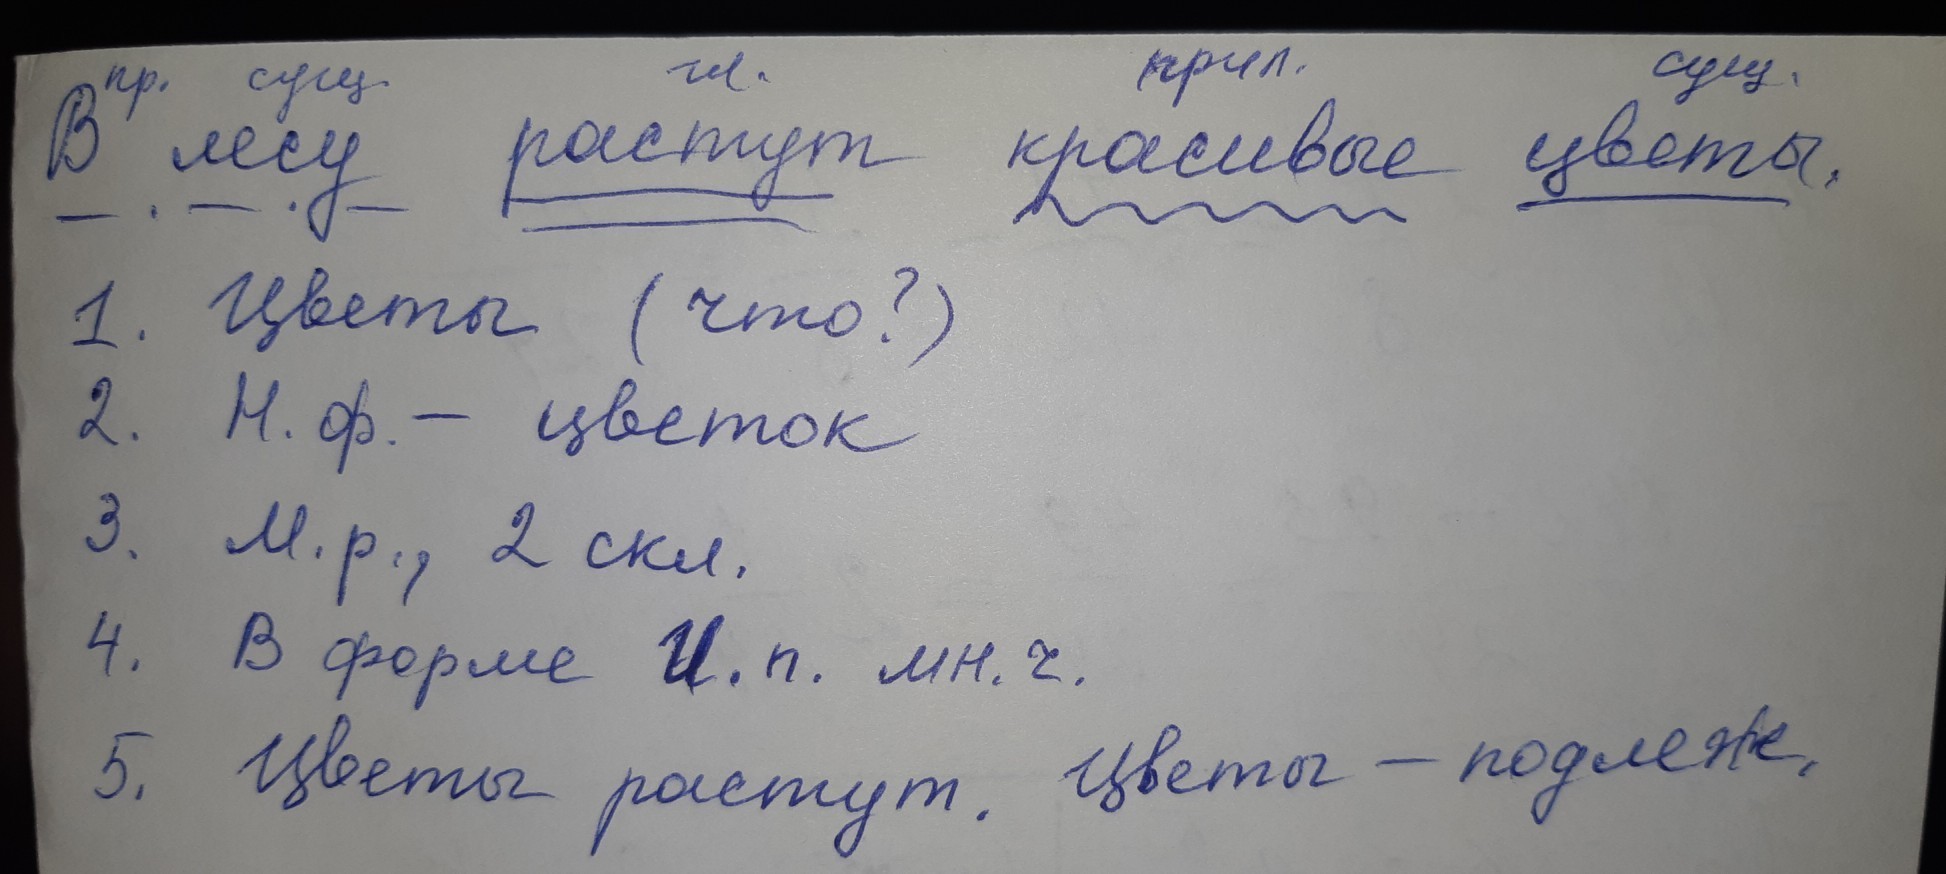 пр. сущ. гл. прил. сущ.
В лесу растут красивые цветы.
1. Цветы (что?)
2. Н. ф. – цветок
3. М. р., 2 скл.
4. В форме И. п. мн. ч.
5. Цветы растут. Цветы – подлеж.